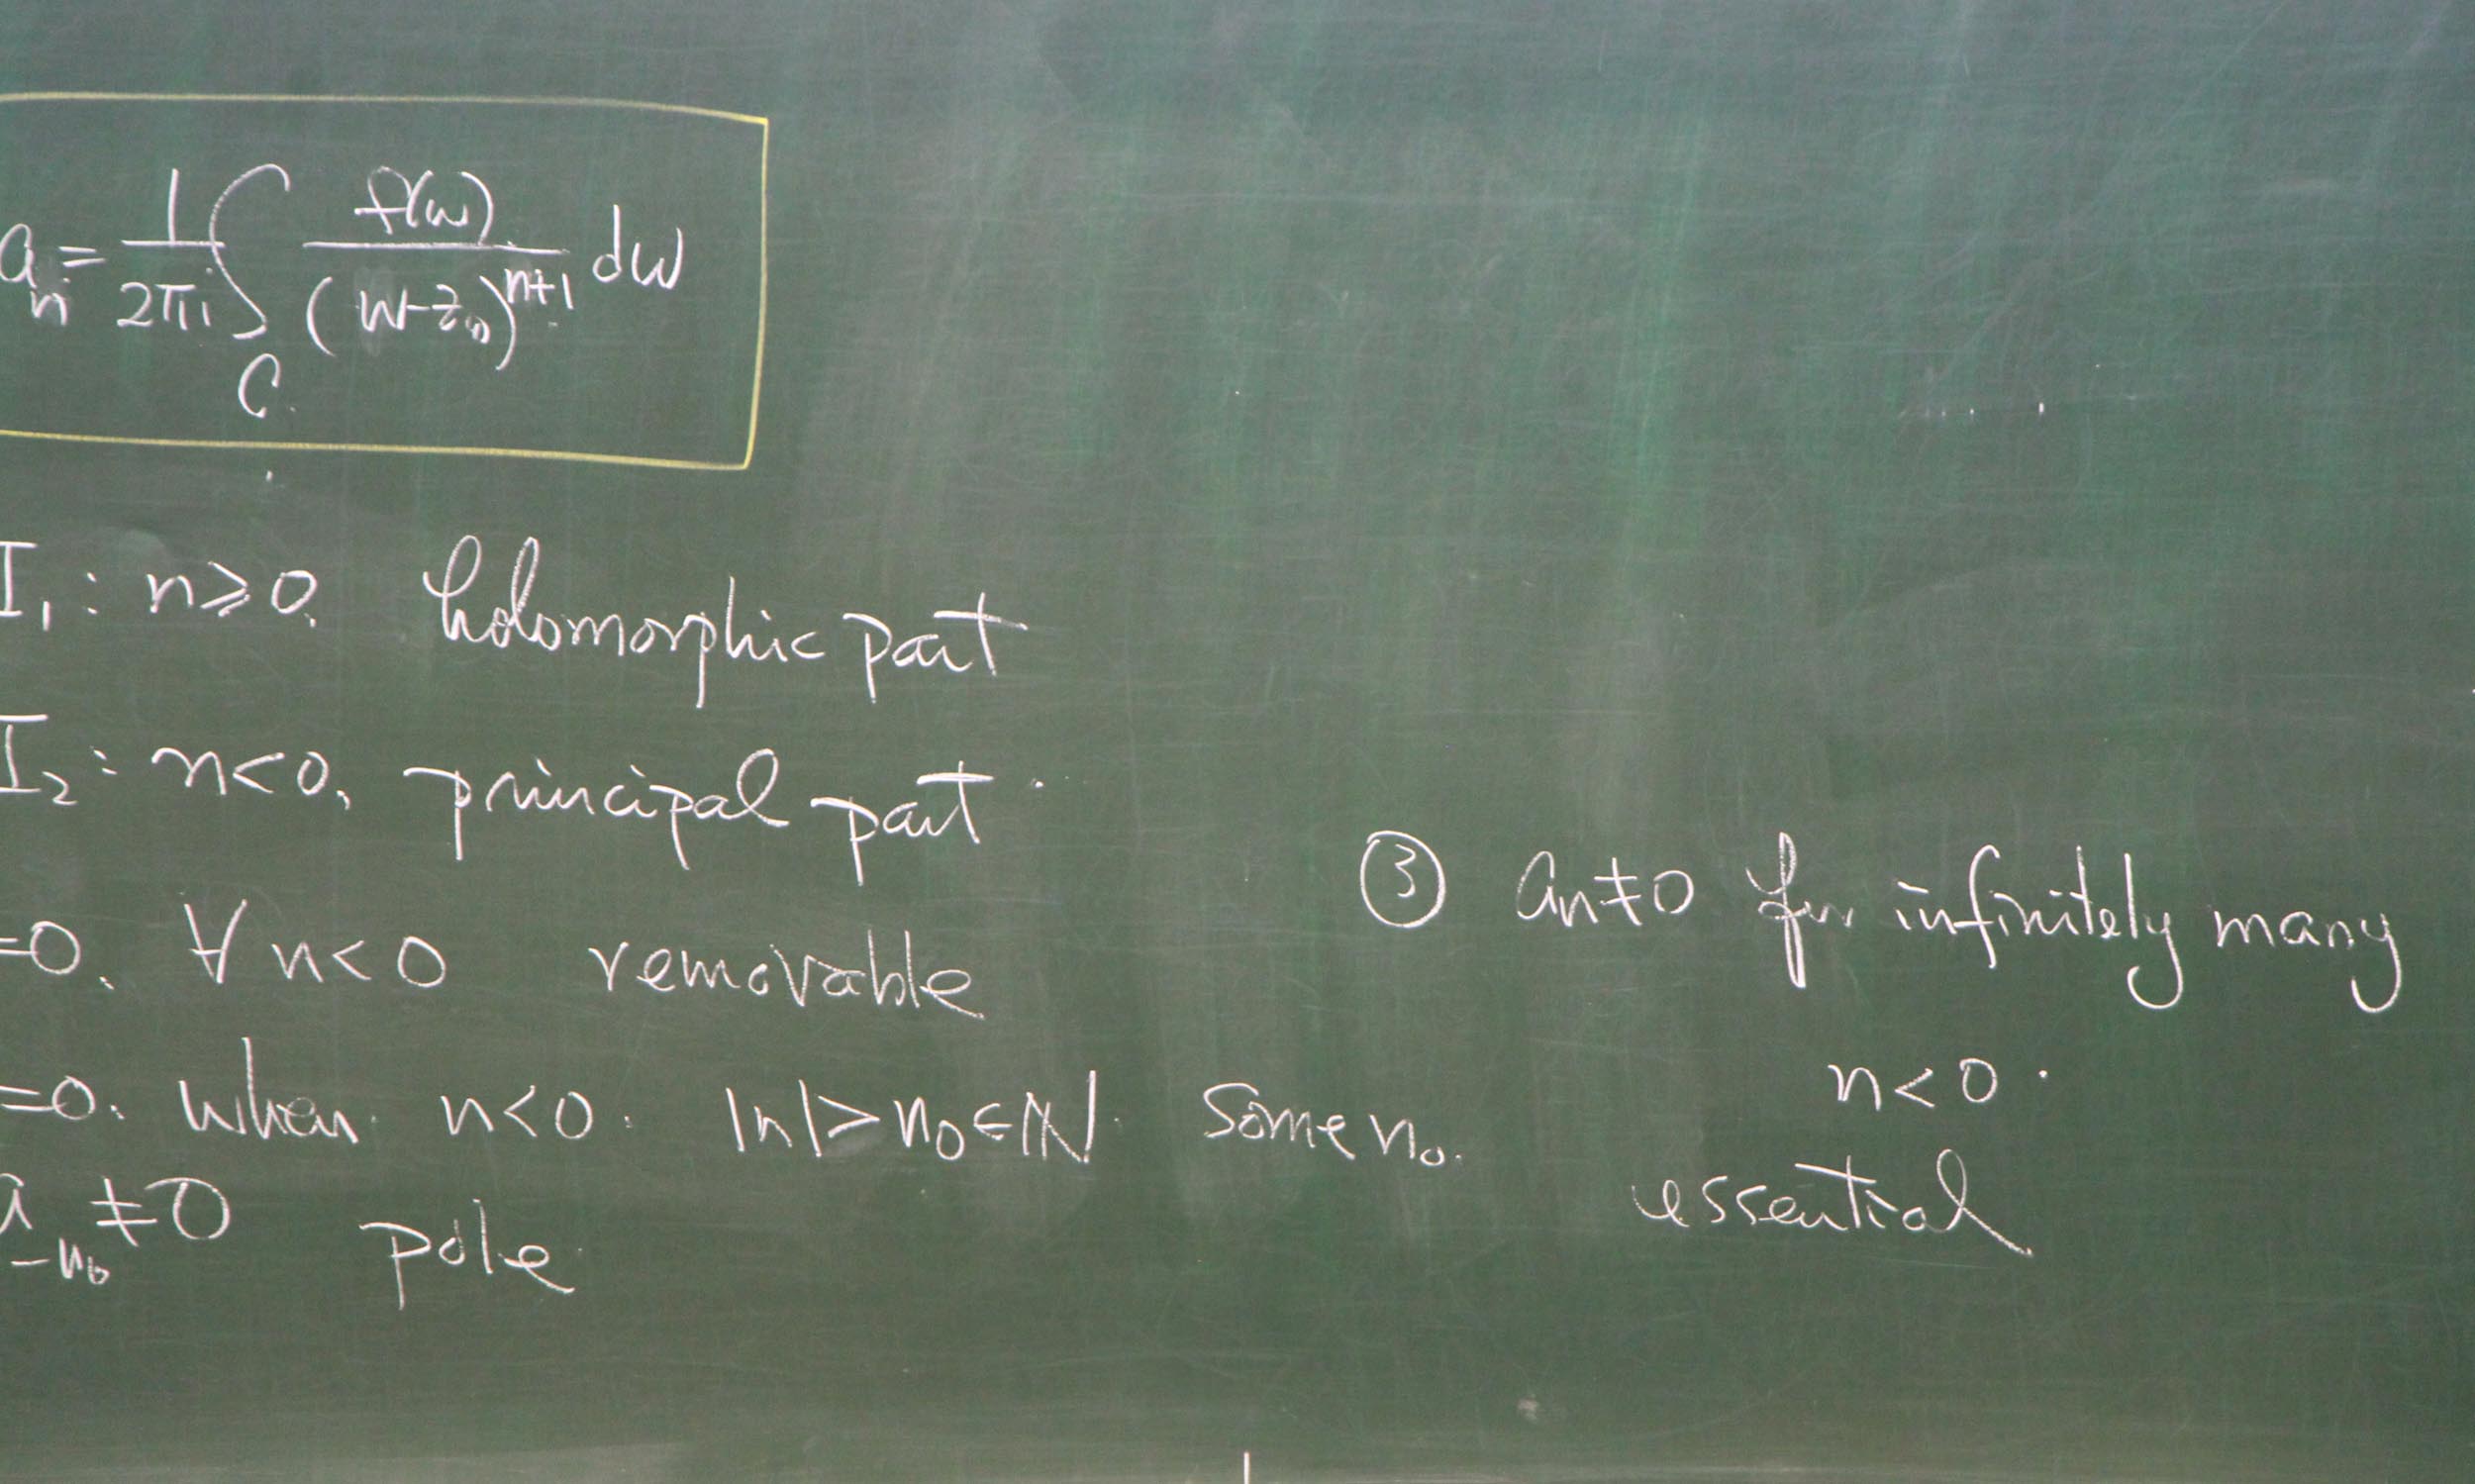 aₙ = 1/2πi ∫_C f(w)/(w-z₀)ⁿ⁺¹ dw
I₁: n≥0. holomorphic part
I₂: n<0, principal part.
=0. ∀n<0 removable
=0. when n<0. |n|>n₀∈ℕ. some n₀.
a₋ₙ₀≠0 pole
③ aₙ≠0 for infinitely many
n<0.
essential